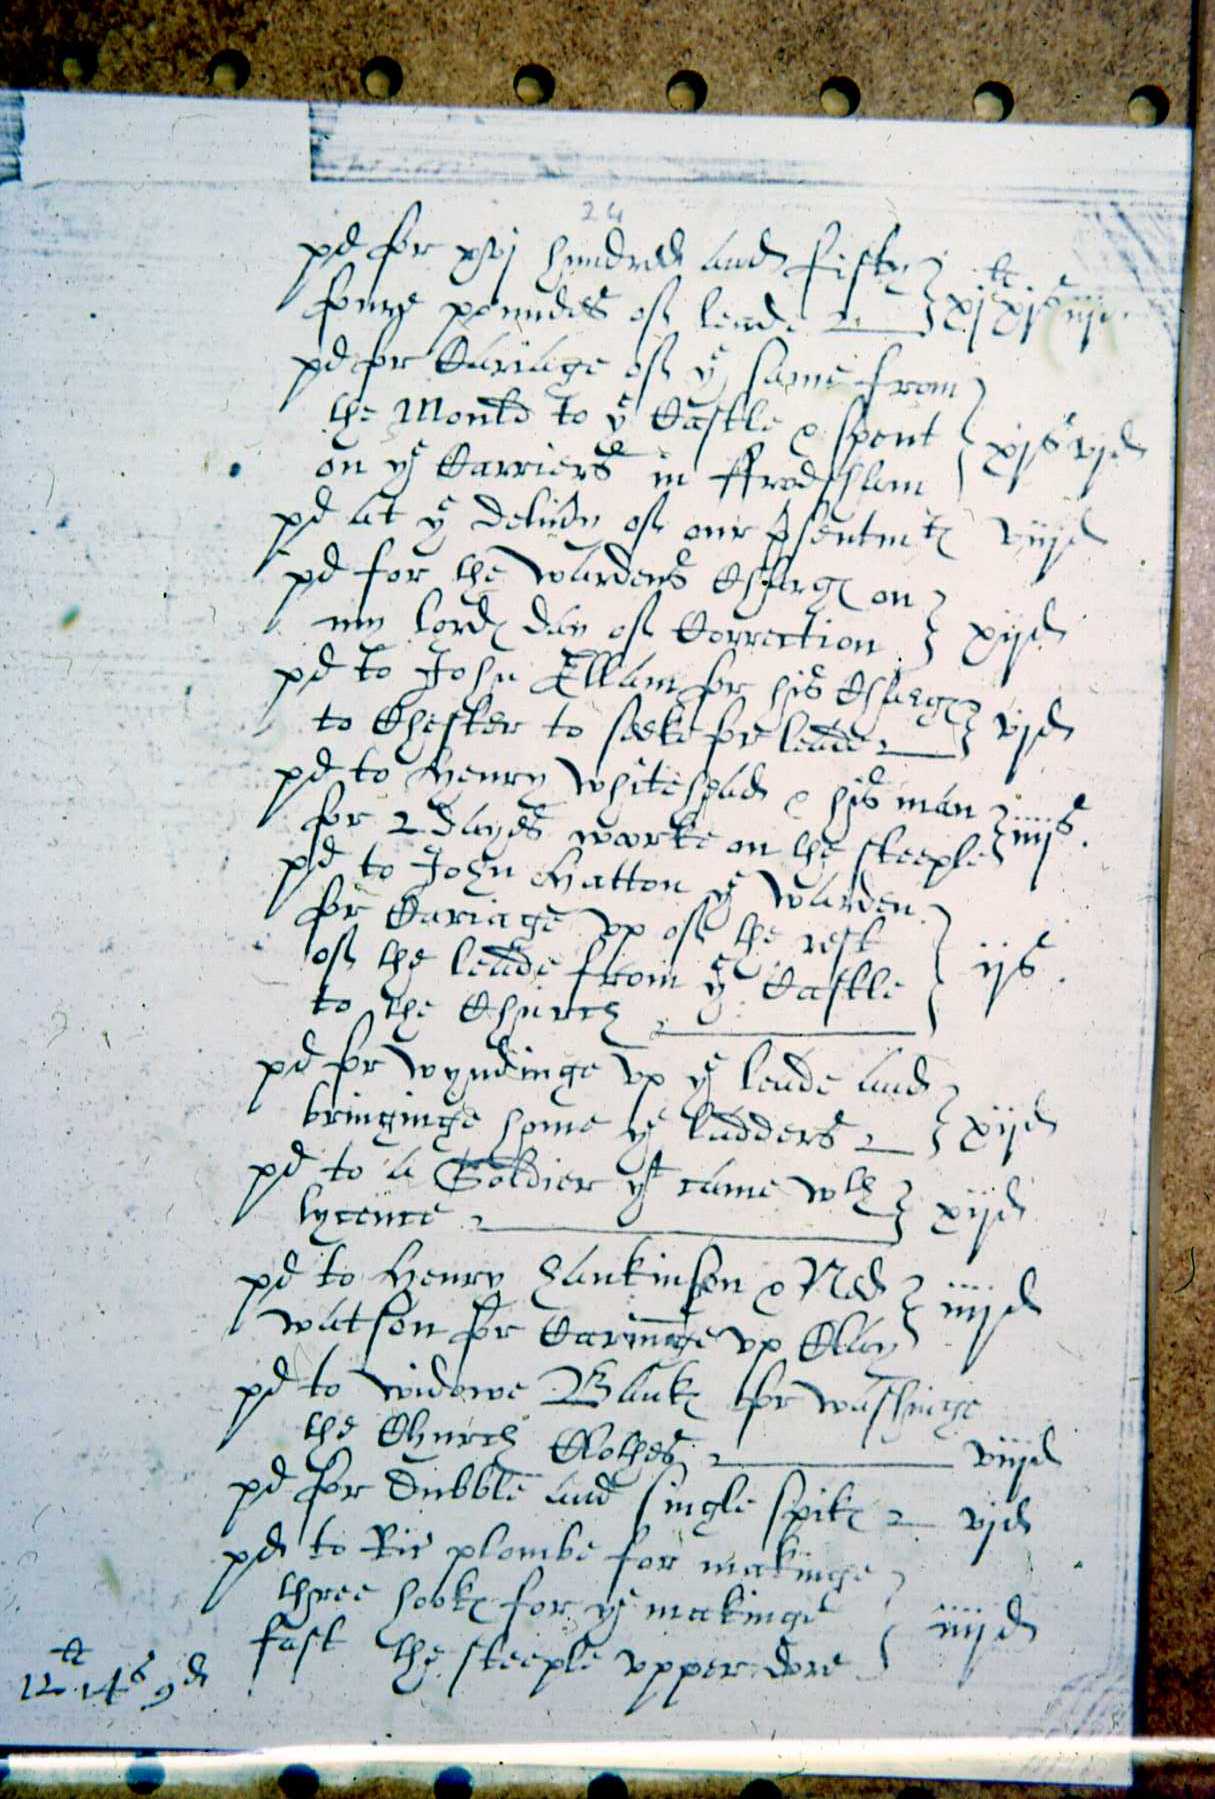 24
pd for xvj hundred and fifty
foure poundes of leade xj li xjs iijd.
pd for Cariage of ye same from
the Mould to ye Castle & spent
on ye Carriers in ffrodsham xjs vjd
pd at ye delivy of our psentmts viijd
pd for the Wardens Charges on
my lords day of Correction xijd
pd to John Ellam for his Charges
to Chester to seeke for leade vjd
pd to Henry Whitehead & his man
for 2 dayes worke on the steeple iiijs.
pd to John Hatton ye Warden
for Cariage vp of the rest
of the leade from ye Castle
to the Church ijs.
pd for wyndinge vp ye leade and
bringinge home ye ladders xijd
pd to a Soldier yt came wth
lycence xijd
pd to Henry Hankinson & Ned
Watson for Caringe vp Clay iiijd
pd to widowe Banks for washinge
the Church Clothes viijd
pd for dubble and single spikes vjd
pd to Ric plombe for makinge
three hookes for ye makinge
fast the steeple vpper dore iiijd
12li 14s 9d